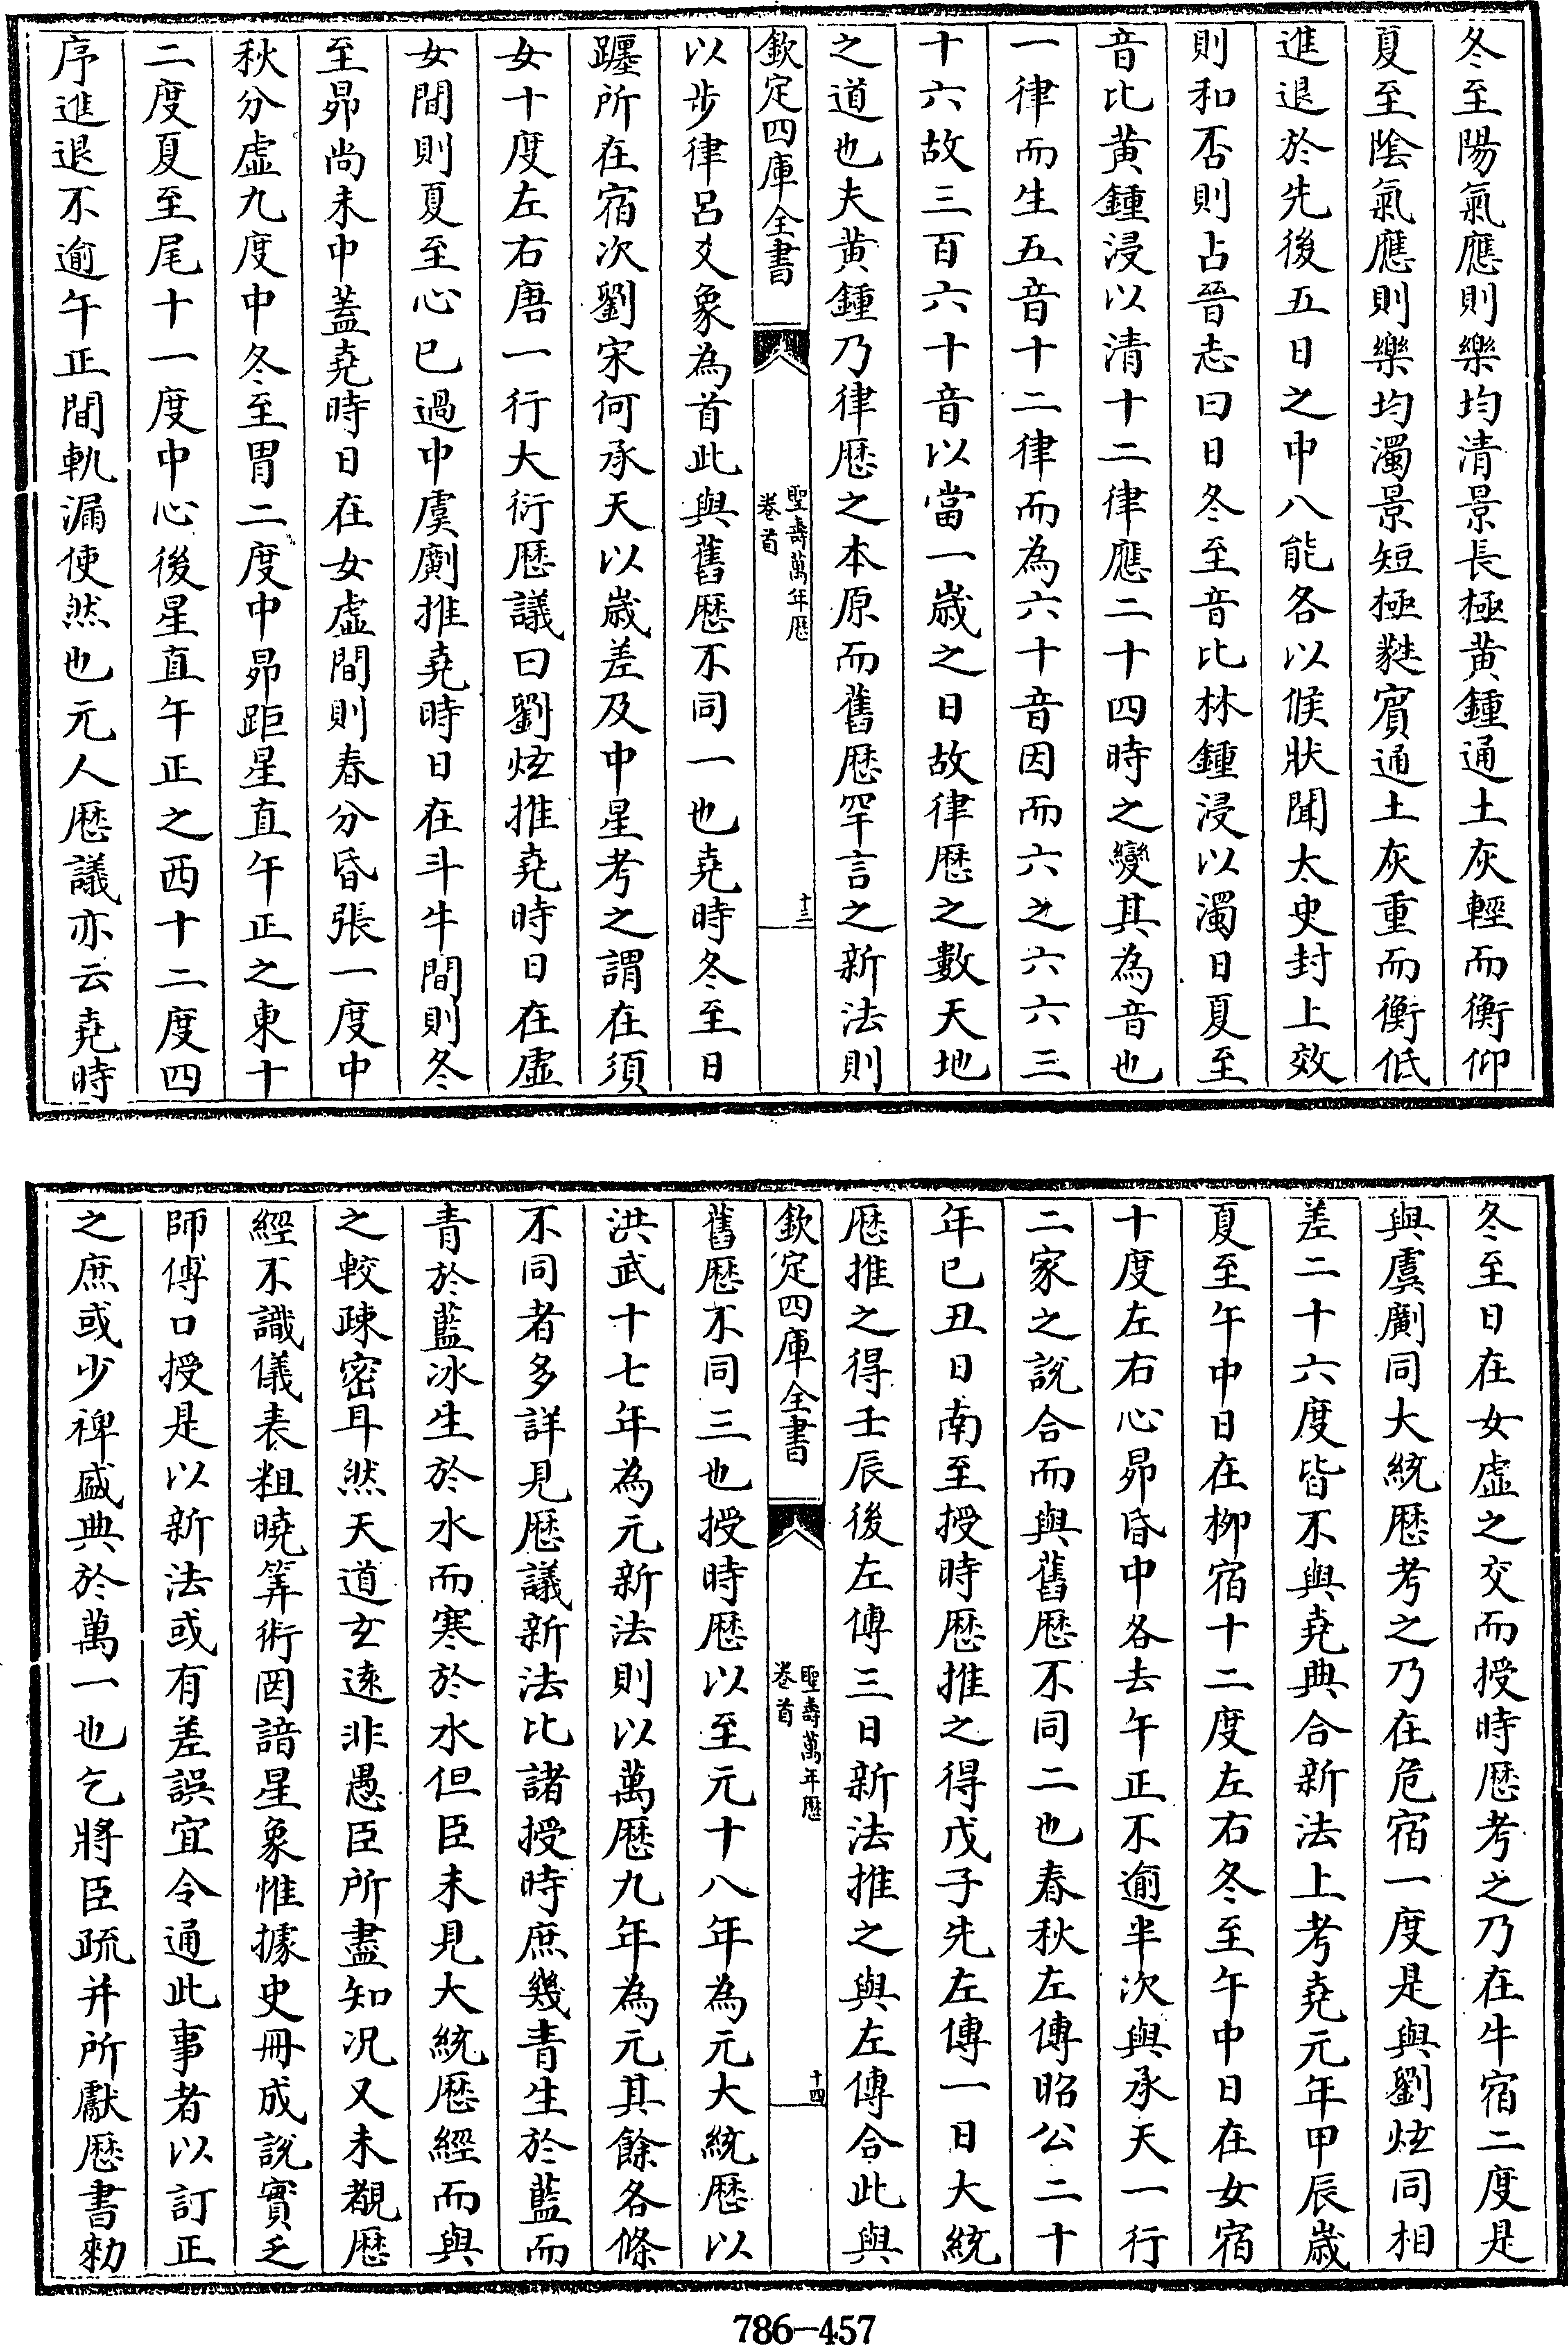 冬至陽氣應則樂均清景長極黃鍾通土灰輕而衡仰
夏至陰氣應則樂均濁景短極蕤賓通土灰重而衡低
進退於先後五日之中八能各以候狀聞太史封上效
則和否則占晉志曰日冬至音比林鍾浸以濁日夏至
音比黃鍾浸以清十二律應二十四時之變其為音也
一律而生五音十二律而為六十音因而六之六六三
十六故三百六十音以當一歲之日故律厯之數天地
之道也夫黃鍾乃律厯之本原而舊厯罕言之新法則
欽定四庫全書
聖壽萬年厯
卷首
十三
以步律呂爻象為首此與舊厯不同一也堯時冬至日
躔所在宿次劉宋何承天以歲差及中星考之謂在須
女十度左右唐一行大衍厯議曰劉炫推堯時日在虛
女間則夏至心已過中虞𠠎推堯時日在斗牛間則冬
至昴尚未中蓋堯時日在女虛間則春分昏張一度中
秋分虛九度中冬至胃二度中昴距星直午正之東十
二度夏至尾十一度中心後星直午正之西十二度四
序進退不逾午正間軌漏使然也元人厯議亦云堯時
冬至日在女虛之交而授時厯考之乃在牛宿二度是
與虞𠠎同大統厯考之乃在危宿一度是與劉炫同相
差二十六度皆不與堯典合新法上考堯元年甲辰歲
夏至午中日在柳宿十二度左右冬至午中日在女宿
十度左右心昴昏中各去午正不逾半次與承天一行
二家之說合而與舊厯不同二也春秋左傳昭公二十
年已丑日南至授時厯推之得戊子先左傳一日大統
厯推之得壬辰後左傳三日新法推之與左傳合此與
欽定四庫全書
聖壽萬年厯
卷首
十四
舊厯不同三也授時厯以至元十八年為元大統厯以
洪武十七年為元新法則以萬厯九年為元其餘各條
不同者多詳見厯議新法比諸授時庶幾青生於藍而
青於藍冰生於水而寒於水但臣未見大統厯經而與
之較疎密耳然天道玄遠非愚臣所盡知况又未覩厯
經不識儀表粗曉筭術罔諳星象惟據史冊成說實乏
師傳口授是以新法或有差誤宜令通此事者以訂正
之庶或少裨盛典於萬一也乞將臣疏并所獻厯書勑
786-457